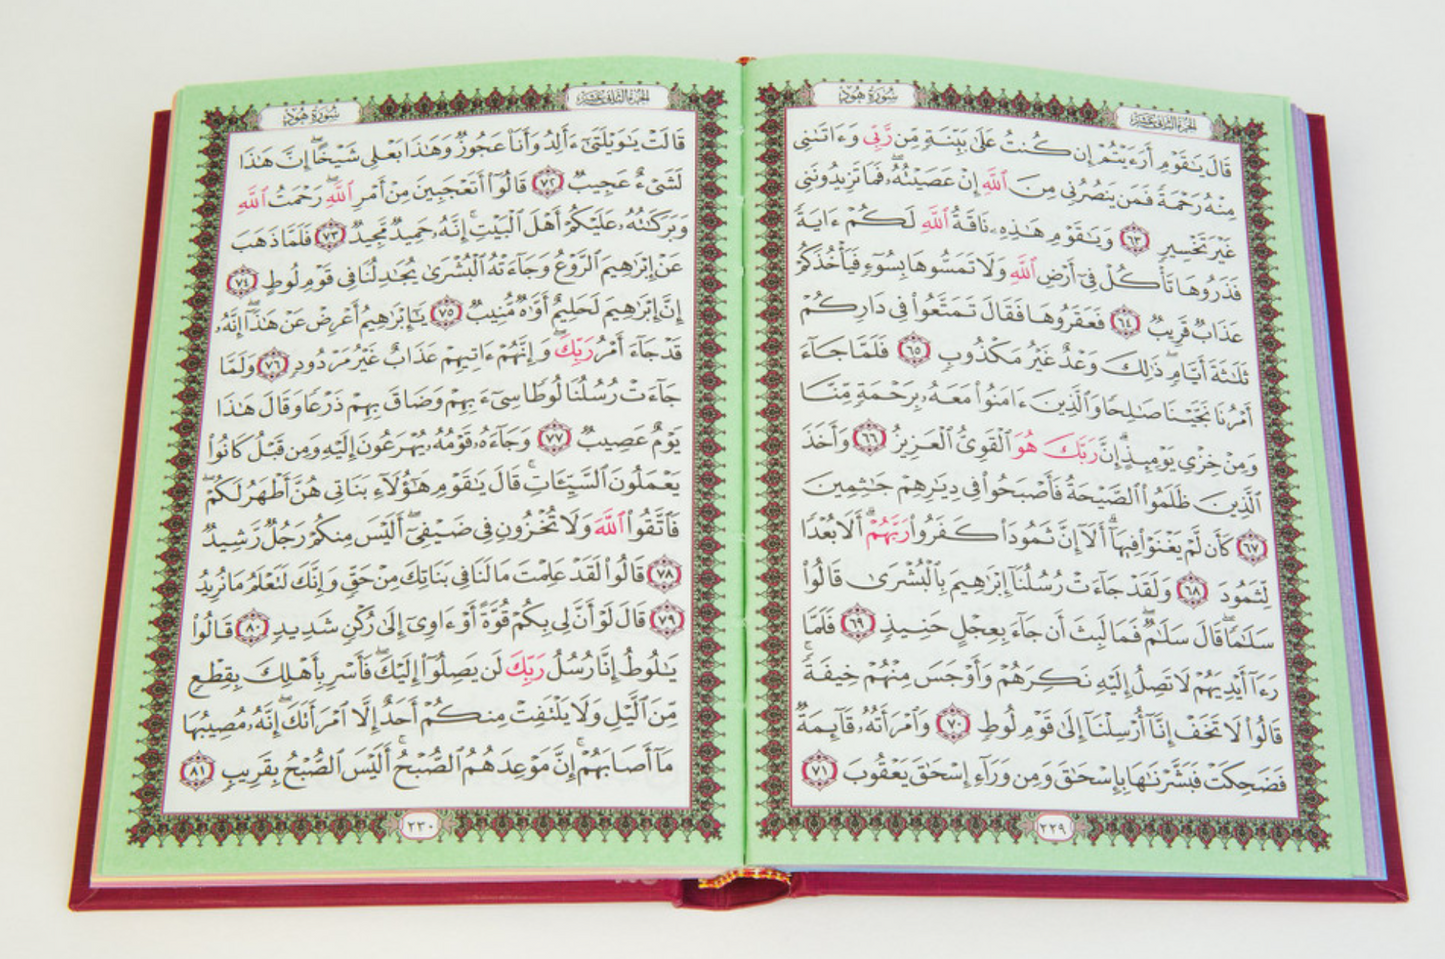 الجُزءُ الثَّانِي عَشَرَ سُورَةُ هُودٍ
قَالَ يَٰقَوْمِ أَرَءَيْتُمْ إِن كُنتُ عَلَىٰ بَيِّنَةٍ مِّن رَّبِّي وَءَاتَىٰنِي
مِنْهُ رَحْمَةً فَمَن يَنصُرُنِي مِنَ ٱللَّهِ إِنْ عَصَيْتُهُۥۖ فَمَا تَزِيدُونَنِي
غَيْرَ تَخْسِيرٍ ٦٣ وَيَٰقَوْمِ هَٰذِهِۦ نَاقَةُ ٱللَّهِ لَكُمْ ءَايَةً
فَذَرُوهَا تَأْكُلْ فِيٓ أَرْضِ ٱللَّهِ وَلَا تَمَسُّوهَا بِسُوٓءٍ فَيَأْخُذَكُمْ
عَذَابٌ قَرِيبٌ ٦٤ فَعَقَرُوهَا فَقَالَ تَمَتَّعُوا۟ فِي دَارِكُمْ
ثَلَٰثَةَ أَيَّامٍۖ ذَٰلِكَ وَعْدٌ غَيْرُ مَكْذُوبٍ ٦٥ فَلَمَّا جَآءَ
أَمْرُنَا نَجَّيْنَا صَٰلِحًا وَٱلَّذِينَ ءَامَنُوا۟ مَعَهُۥ بِرَحْمَةٍ مِّنَّا
وَمِنْ خِزْيِ يَوْمِئِذٍۗ إِنَّ رَبَّكَ هُوَ ٱلْقَوِيُّ ٱلْعَزِيزُ ٦٦ وَأَخَذَ
ٱلَّذِينَ ظَلَمُوا۟ ٱلصَّيْحَةُ فَأَصْبَحُوا۟ فِي دِيَٰرِهِمْ جَٰثِمِينَ
٦٧ كَأَن لَّمْ يَغْنَوْا۟ فِيهَآۗ أَلَآ إِنَّ ثَمُودَا۟ كَفَرُوا۟ رَبَّهُمْۗ أَلَا بُعْدًا
لِّثَمُودَ ٦٨ وَلَقَدْ جَآءَتْ رُسُلُنَآ إِبْرَٰهِيمَ بِٱلْبُشْرَىٰ قَالُوا۟
سَلَٰمًاۖ قَالَ سَلَٰمٌۖ فَمَا لَبِثَ أَن جَآءَ بِعِجْلٍ حَنِيذٍ ٦٩ فَلَمَّا
رَءَآ أَيْدِيَهُمْ لَا تَصِلُ إِلَيْهِ نَكِرَهُمْ وَأَوْجَسَ مِنْهُمْ خِيفَةًۚ
قَالُوا۟ لَا تَخَفْ إِنَّآ أُرْسِلْنَآ إِلَىٰ قَوْمِ لُوطٍ ٧٠ وَٱمْرَأَتُهُۥ قَآئِمَةٌ
فَضَحِكَتْ فَبَشَّرْنَٰهَا بِإِسْحَٰقَ وَمِن وَرَآءِ إِسْحَٰقَ يَعْقُوبَ ٧١
٢٢٩
الجُزءُ الثَّانِي عَشَرَ سُورَةُ هُودٍ
قَالَتْ يَٰوَيْلَتَىٰٓ ءَأَلِدُ وَأَنَا۠ عَجُوزٌ وَهَٰذَا بَعْلِي شَيْخًاۖ إِنَّ هَٰذَا
لَشَيْءٌ عَجِيبٌ ٧٢ قَالُوٓا۟ أَتَعْجَبِينَ مِنْ أَمْرِ ٱللَّهِۖ رَحْمَتُ ٱللَّهِ
وَبَرَكَٰتُهُۥ عَلَيْكُمْ أَهْلَ ٱلْبَيْتِۚ إِنَّهُۥ حَمِيدٌ مَّجِيدٌ ٧٣ فَلَمَّا ذَهَبَ
عَنْ إِبْرَٰهِيمَ ٱلرَّوْعُ وَجَآءَتْهُ ٱلْبُشْرَىٰ يُجَٰدِلُنَا فِي قَوْمِ لُوطٍ ٧٤
إِنَّ إِبْرَٰهِيمَ لَحَلِيمٌ أَوَّٰهٌ مُّنِيبٌ ٧٥ يَٰٓإِبْرَٰهِيمُ أَعْرِضْ عَنْ هَٰذَآۖ إِنَّهُۥ
قَدْ جَآءَ أَمْرُ رَبِّكَۖ وَإِنَّهُمْ ءَاتِيهِمْ عَذَابٌ غَيْرُ مَرْدُودٍ ٧٦ وَلَمَّا
جَآءَتْ رُسُلُنَا لُوطًا سِيٓءَ بِهِمْ وَضَاقَ بِهِمْ ذَرْعًا وَقَالَ هَٰذَا
يَوْمٌ عَصِيبٌ ٧٧ وَجَآءَهُۥ قَوْمُهُۥ يُهْرَعُونَ إِلَيْهِ وَمِن قَبْلُ كَانُوا۟
يَعْمَلُونَ ٱلسَّيِّـَٔاتِۚ قَالَ يَٰقَوْمِ هَٰٓؤُلَآءِ بَنَاتِي هُنَّ أَطْهَرُ لَكُمْۖ
فَٱتَّقُوا۟ ٱللَّهَ وَلَا تُخْزُونِ فِي ضَيْفِيٓۖ أَلَيْسَ مِنكُمْ رَجُلٌ رَّشِيدٌ
٧٨ قَالُوا۟ لَقَدْ عَلِمْتَ مَا لَنَا فِي بَنَاتِكَ مِنْ حَقٍّ وَإِنَّكَ لَتَعْلَمُ مَا نُرِيدُ
٧٩ قَالَ لَوْ أَنَّ لِي بِكُمْ قُوَّةً أَوْ ءَاوِيٓ إِلَىٰ رُكْنٍ شَدِيدٍ ٨٠ قَالُوا۟
يَٰلُوطُ إِنَّا رُسُلُ رَبِّكَ لَن يَصِلُوٓا۟ إِلَيْكَۖ فَأَسْرِ بِأَهْلِكَ بِقِطْعٍ
مِّنَ ٱلَّيْلِ وَلَا يَلْتَفِتْ مِنكُمْ أَحَدٌ إِلَّا ٱمْرَأَتَكَۖ إِنَّهُۥ مُصِيبُهَا
مَآ أَصَابَهُمْۚ إِنَّ مَوْعِدَهُمُ ٱلصُّبْحُۚ أَلَيْسَ ٱلصُّبْحُ بِقَرِيبٍ ٨١
٢٣٠